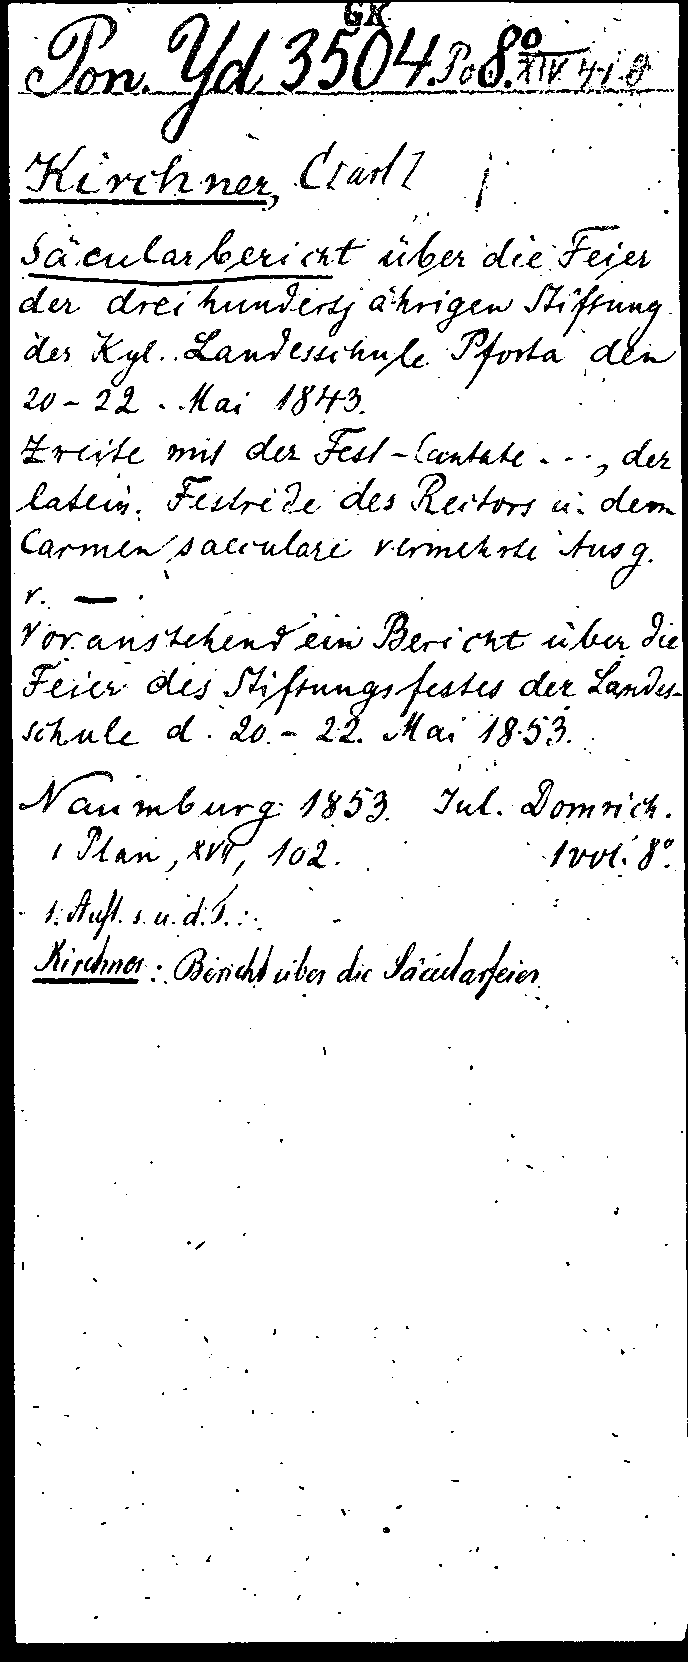 GK
Pon. Yd 3504. 8°
Kirchner, C[arl]
Säcularbericht über die Feier
der dreihundertjährigen Stiftung
der Kgl. Landesschule Pforta den
20-22. Mai 1843.
Zweite mit der Fest-Cantate ..., der
latein. Festrede des Rectors u. dem
Carmen saeculare vermehrte Ausg.
v. —
Voranstehend ein Bericht über die
Feier des Stiftungsfestes der Landes-
schule d. 20.-22. Mai 1853.
Naumburg 1853. Jul. Domrich.
1 Plan, XVII, 102. 1 vol. 8°.
1. Aufl. s. u. d. T.:
Kirchner: Bericht über die Säcularfeier